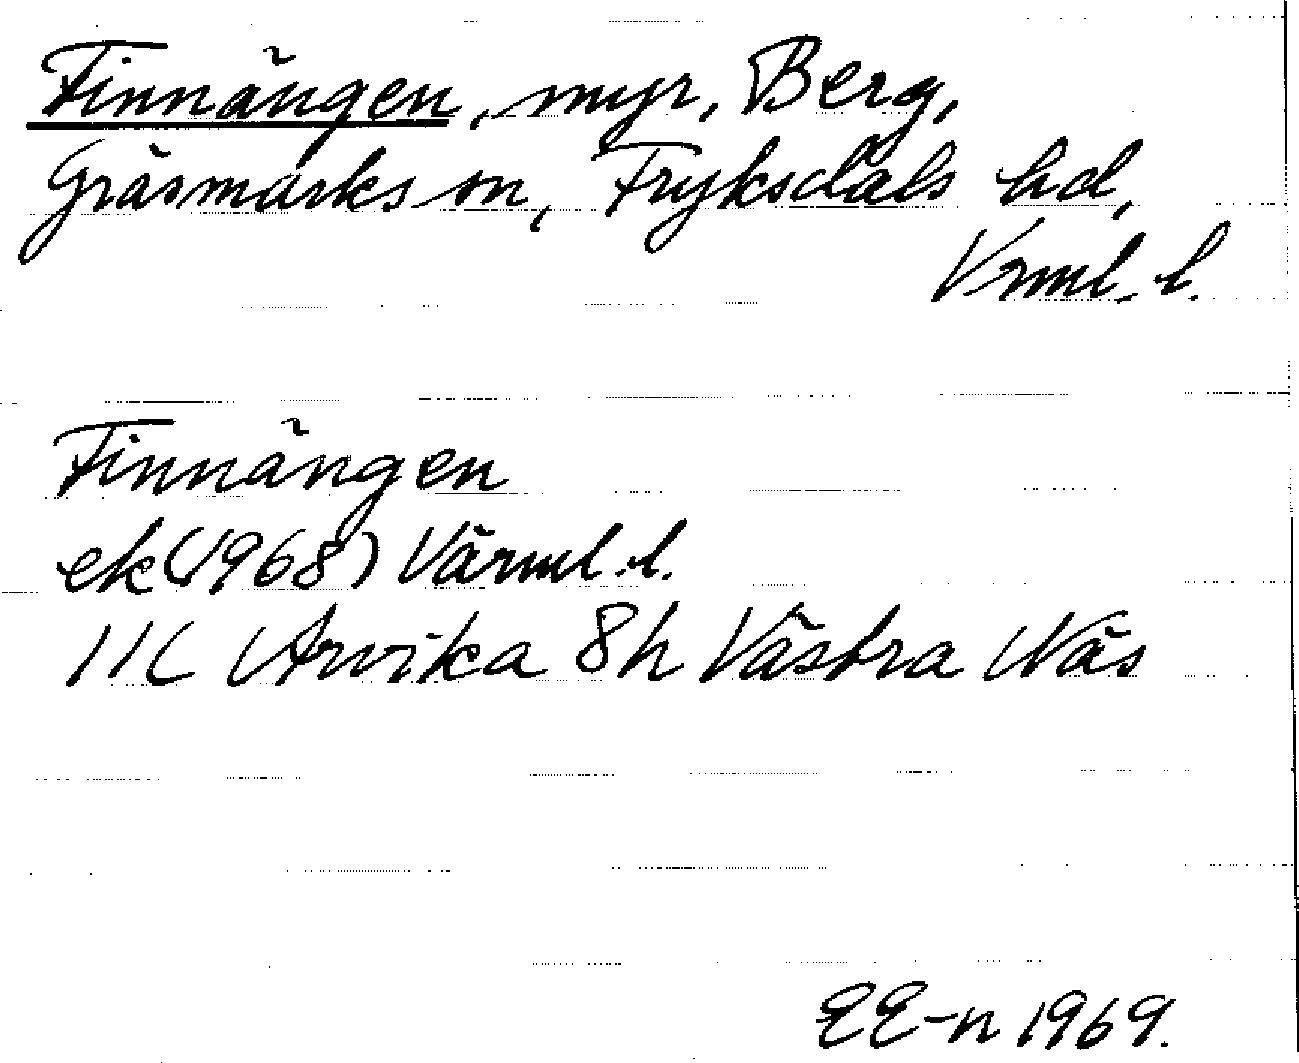 Finnängen, myr, Berg,
Gräsmarks sn, Fryksdals hd,
Vrml. l.
Finnängen
ek(1968) Värml. l.
11C Arvika 8h Västra Näs
EE-n 1969.